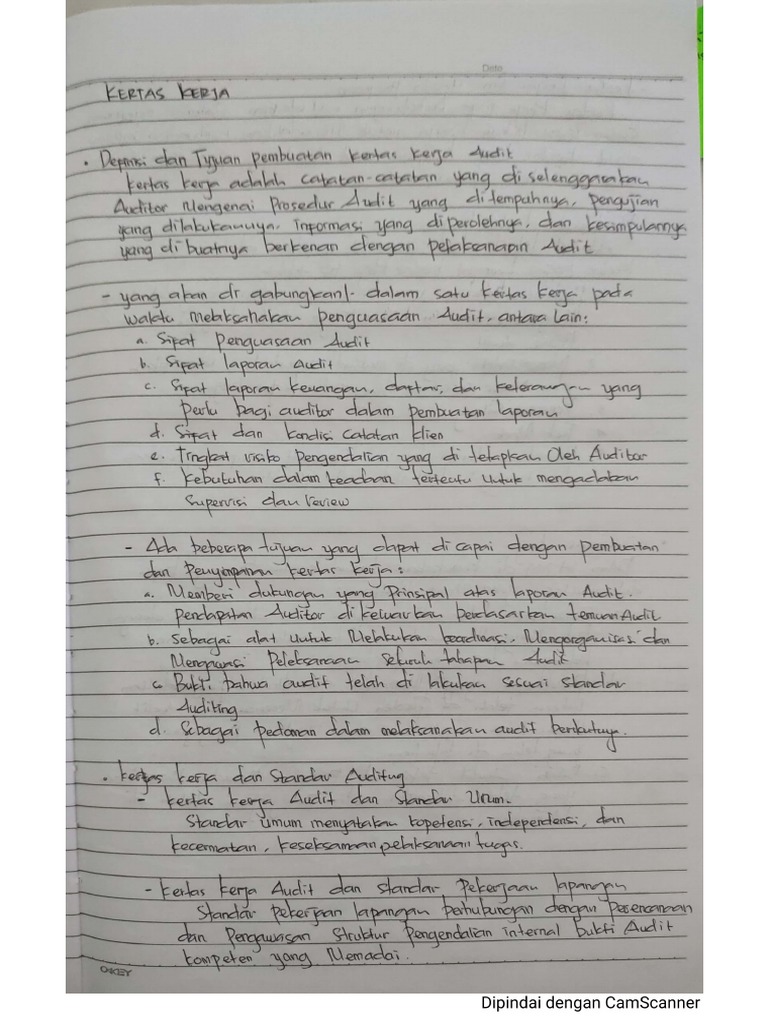 Date
KERTAS KERJA
• Definisi dan Tujuan pembuatan kertas kerja Audit
kertas kerja adalah catatan-catatan yang di selenggarakan
Auditor Mengenai Prosedur Audit yang ditempahnya, pengujian
yang dilakukannya, informasi yang di perolehnya, dan kesimpulannya
yang di buatnya berkenan dengan pelaksanaan Audit
- yang akan di gabungkan dalam satu kertas kerja pada
waktu melaksanakan penguasaan Audit, antara lain:
a. Sifat Penguasaan Audit
b. Sifat laporan Audit
c. Sifat laporan keuangan, daftar, dan keterangan yang
perlu bagi auditor dalam pembuatan laporan
d. Sifat dan kondisi catatan klien
e. Tingkat risiko pengendalian yang di tetapkan Oleh Auditor
f. Kebutuhan dalam keadaan tertentu untuk mengadakan
Supervisi dan review
- Ada beberapa tujuan yang dapat di capai dengan pembuatan
dan Penyimpanan kertas kerja:
a. Memberi dukungan yang Prinsipal atas laporan Audit.
pendapatan Auditor di keluarkan berdasarkan temuan Audit
b. Sebagai alat untuk Melakukan koordinasi, Mengorganisasi dan
Mengawasi Peleksanaan seluruh tahapan Audit
c. Bukti bahwa audit telah di lakukan sesuai standar
Auditing
d. Sebagai pedoman dalam melaksanakan audit berikutnya.
• kertas kerja dan Standar Auditing
- kertas kerja Audit dan Standar Umum.
Standar umum menyatakan kopetensi, independensi, dan
kecermatan, keseksamaan pelaksanaan tugas.
- Kertas kerja Audit dan standar Pekerjaan lapangan
Standar pekerjaan lapangan berhubungan dengan Perencanaan
dan Pengawasan Struktur Pengendalian internal bukti Audit
kompeten yang Memadai.
OKEY
Dipindai dengan CamScanner